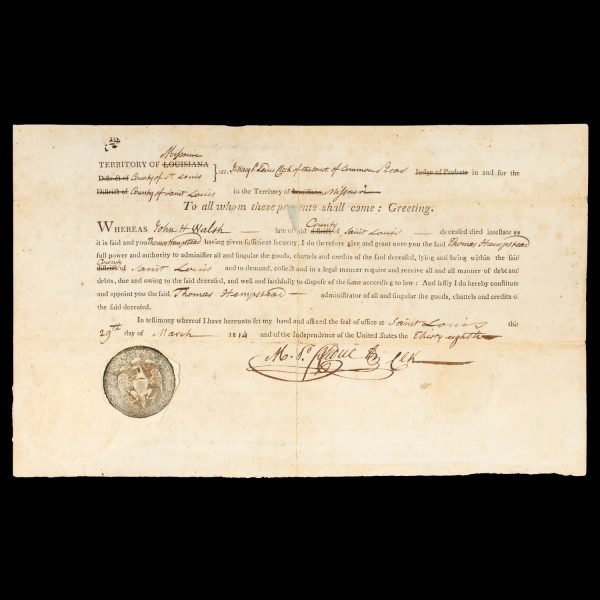 Missouri
TERRITORY OF LOUISIANA
District of County of St Louis } ss. I Mary P. Leduc Clerk of the court of Common Pleas Judge of Probate in and for the
District of County of Saint Louis in the Territory of Louisiana, Missouri
To all whom these presents shall come: Greeting.
County
WHEREAS John H. Walsh — late of said District of Saint Louis — deceased died inteſtate as
it is said and you Thomas Hempstead having given ſufficient ſecurity, I do therefore give and grant unto you the ſaid Thomas Hempstead
full power and authority to adminiſter all and ſingular the goods, chattels and credits of the ſaid deceaſed, lying and being within the ſaid
County
District of Saint Louis and to demand, collect and in a legal manner require and receive all and all manner of debt and
debts, due and owing to the ſaid deceaſed, and well and faithfully to diſpoſe of the ſame according to law: And laſtly I do hereby conſtitute
and appoint you the ſaid Thomas Hempstead — adminiſtrator of all and ſingular the goods, chattels and credits of
the ſaid deceaſed.
In teſtimony whereof I have hereunto ſet my hand and affixed the ſeal of office at Saint Louis this
29th day of March 1814 and of the Independence of the United States the Thirty eighth
M. P. Leduc Clk